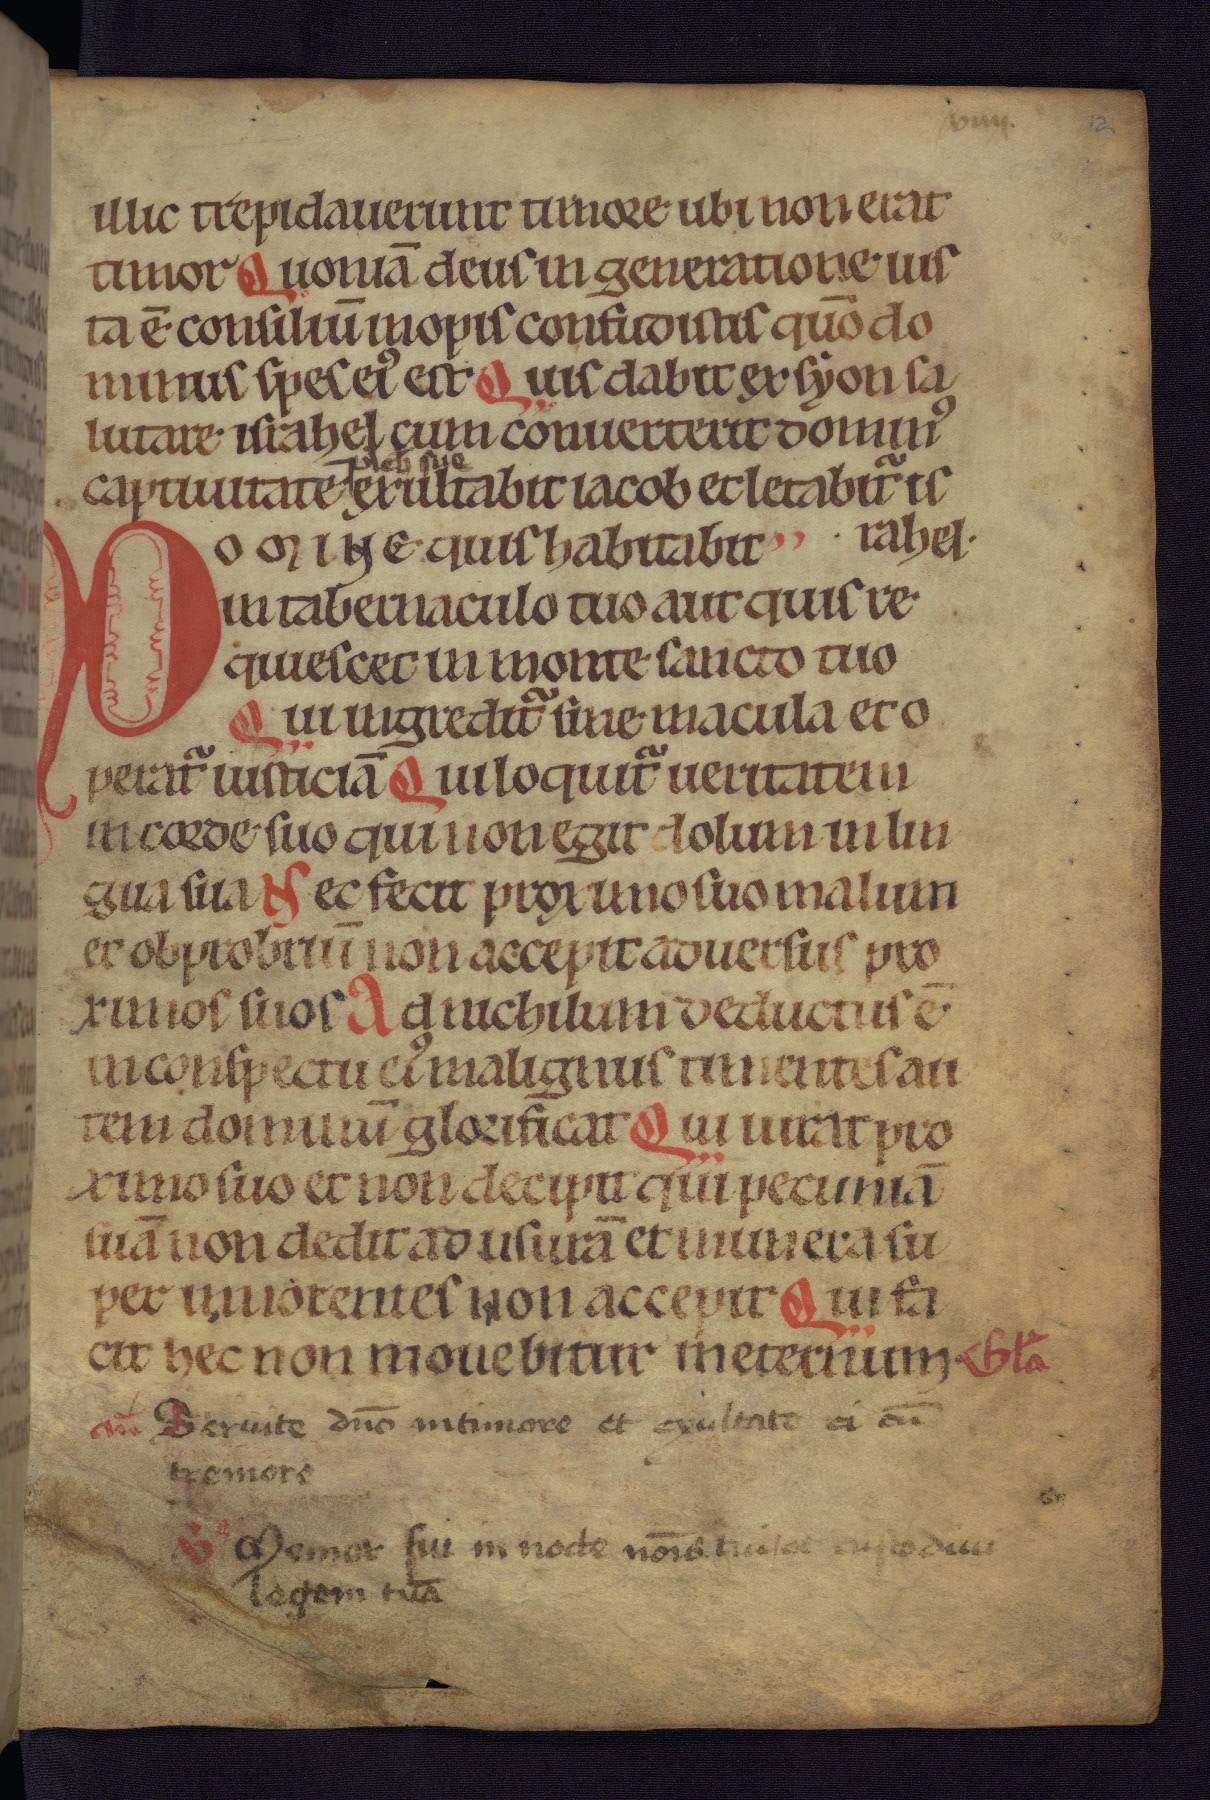 viiij. 12
illic trepidauerunt timore ubi non erat
timor Quoniā deus in generatione ius
ta ē consiliū inopis confudistis qūo do
minus spes eiꝰ est Quis dabit ex syon sa
lutare israhel cum conuerterit dominꝰ
pleb sue
captiuitatē exultabit iacob et letabit᷑ is
DOMINE quis habitabit rahel.
in tabernaculo tuo aut quis re
quiescet in monte sancto tuo
Qui ingredit᷑ sine macula et o
perat᷑ iusticiā Qui loquit᷑ ueritatem
in corde suo qui non egit dolum in lin
gua sua Nec fecit proximo suo malum
et obprobriū non accepit aduersus pro
ximos suos Ad nichilum deductus ē
in conspectu eiꝰ malignus timentes au
tem dominū glorificat Qui iurat pro
ximo suo et non decipit qui pecuniā
suā non dedit ad usurā et munera su
per innocentes non accepit Qui fa
cit hec non mouebitur in eternum Glā
an̄ Seruite dn̄o in timore et exultate ei cū
tremore
V Memor fui in nocte nōis tui et custodiui
legem tuā